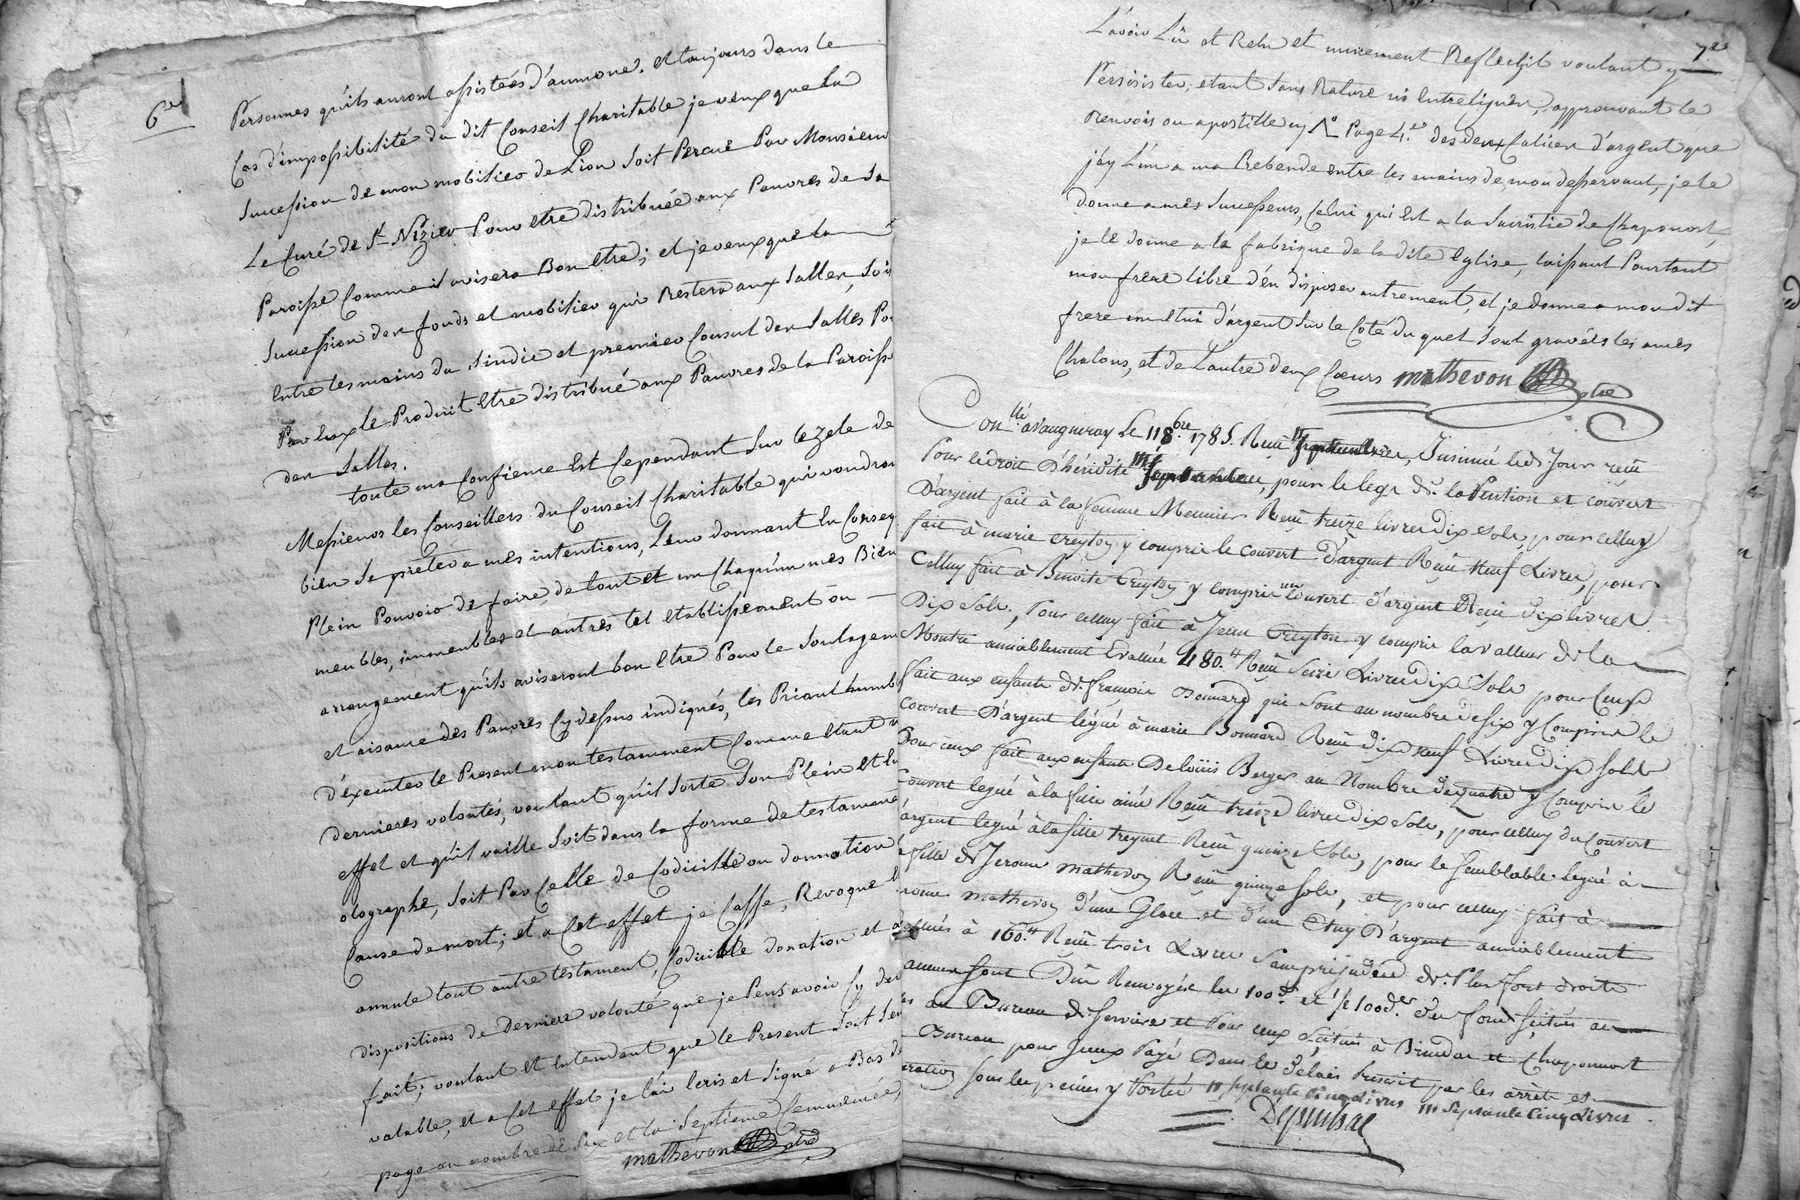 6e
Personnes qu'ils auront assistées d'aumone. et toujours dans le
Cas d'impossibilité du dit Conseil Charitable je veux que la
Succession de mon mobilier de Lion soit Percue Par Monsieur
Le Curé de St Nizier Pour etre distribuée aux Pauvres de Sa
Paroisse Comme il avisera Bon etre; et je veux que la
Succession des fonds et mobilier qui Restera aux Salles, Soit
Entre les mains du Sindic et premier Consul des Salles Po
Par Eux le Produit Etre distribué aux Pauvres de la Paroisse
des Salles.
toute ma Confience Est Cependant Sur le Zele de
Messieurs les Conseillers du Conseil Charitable qui voudron
bien Se prêter a mes intentions, Leur donnant En Conseq
Plein Pouvoir de faire de tout et un Chaqu'un mes Bien
meubles, immeubles et autres tel Etablissement ou
arrangement qu'ils aviseront bon Etre Pour le Soulagem
et aisance des Pauvres Cy dessus indiqués, les Priant humb
d'éxecuter le Present mon testamment Comme Etant
dernieres volontés, voulant qu'il Sorte Son Plein et En
effet et qu'il vaille Soit dans la forme de testament
olographe, Soit Par Celle de Codicille ou donnation
Cause de mort; et a Cet effet je Casse, Revoque
annule tout autre testament, Codicille donation et
dispositions de Derniere volonté que je Peus avoir Cy dev
fait; voulant et Entendant que le Present Soit
valable, et a Cet effet je l'ai Ecris et Signé a Bas d
page au nombre de Six et la Septieme Commencée,
mathevon
7e
L'avoir Lu et Relu et murement Reflechit voulant y
Persister, etant Sans Rature ni Entreligner, approuvant le
Renvois ou apostille en Page 4.e des deux Calices d'argent que
j'ay L'un a ma Prebende entre les mains de mon desservant, je le
donne a mes Successeurs, Celui qui Est a la Sacristie de Chaponost,
je le donne a la fabrique de la dite Eglise, laissant Pourtant
mon frere libre d'en disposer autrement, et je donne a mon dit
frere un Etui d'argent Sur le Coté du quel Sont gravées les armes
Chalons, et de L'autre deux Coeurs mathevon
Conllé à Vaugneray Le 11 8bre 1785. Reçu Insinué led. Jour reçu
Pour le droit D'hérédité pour le legs de la Pention et couvert
D'argent fait à la femme Meunier Reçu treize livres dix sols, pour celluy
fait à marie Creyton y compris le couvert D'argent Reçu Neuf Livres, pour
Celluy fait à Benoite Creyton y compris un Couvert d'argent Reçu dix livres
Dix sols, Pour celluy fait à Jean Creyton y compris la valleur de la
Montre amiablement Evaluée 480.lt Reçu Seize Livres dix Sols pour Ceux
fait aux enfants de françois Bonnard qui sont au nombre de six y Compris le
Couvert D'argent légué à marie Bonnard Reçu dix neuf Livres dix sols
Pour ceux fait aux enfants De Loüis Berger au Nombre de quatre y Compris le
Couvert legué à la fille ainée Reçu treize livres dix Sols, pour celluy du Couvert
d'argent legué à la fille Reçu quinze Sols, pour le Semblable legué à
fille de Jerome mathevon Reçu quinze sols, et pour celluy fait à
mathevon d'une Glace et d'un Etuy D'argent amiablement
à 160.lt Reçu trois Livres Sans préjudice de Plus fort droits
Sont Dûs Renvoyés les 100.e et 1/2 100.e des fonds scitués au
au Bureau de Serviere et Pour ceux scitués à Brindas et Chaponnost
Bureau pour y Estre Payé Dans le Délais Prescrit par les arrêts et
Sous les peines y Portés septante cinq livres septante Cinq Livres